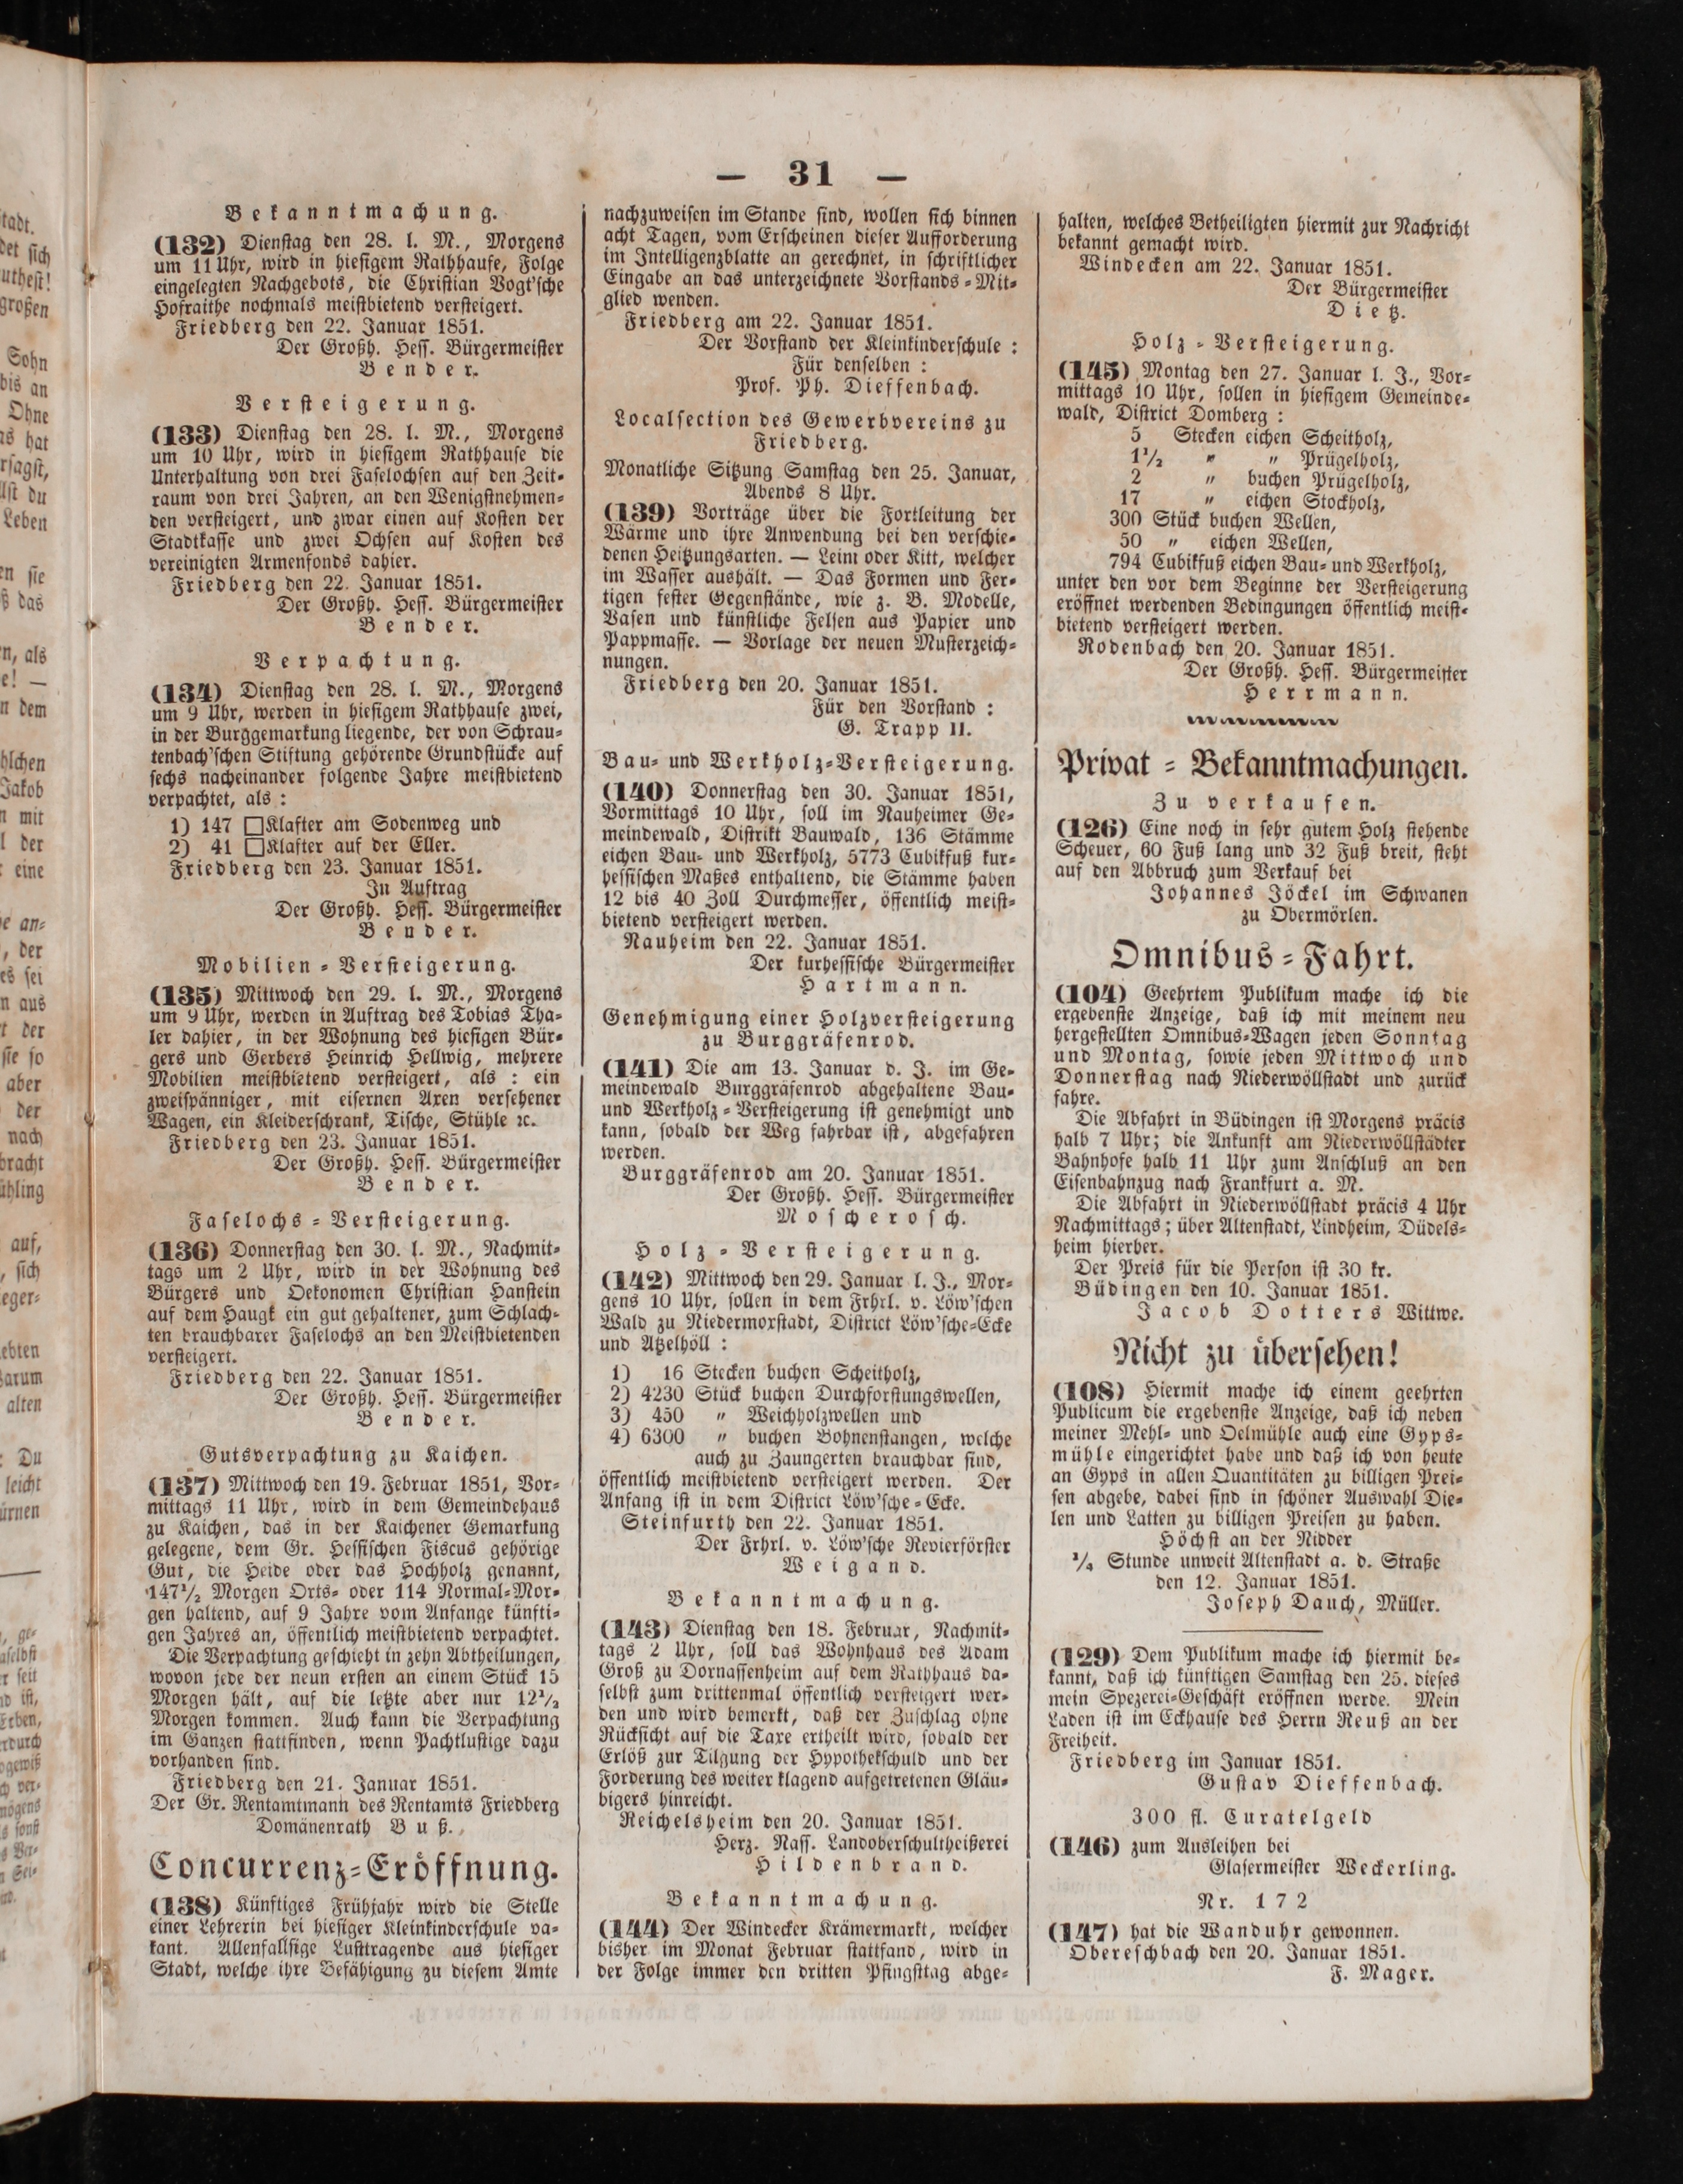 — 31 —
Bekanntmachung.
(132) Dienstag den 28. l. M., Morgens
um 11 Uhr, wird in hiesigem Rathhause, Folge
eingelegten Nachgebots, die Christian Vogt'sche
Hofraithe nochmals meistbietend versteigert.
Friedberg den 22. Januar 1851.
Der Großh. Hess. Bürgermeister
Bender.
Versteigerung.
(133) Dienstag den 28. l. M., Morgens
um 10 Uhr, wird in hiesigem Rathhause die
Unterhaltung von drei Faselochsen auf den Zeit-
raum von drei Jahren, an den Wenigstnehmen-
den versteigert, und zwar einen auf Kosten der
Stadtkasse und zwei Ochsen auf Kosten des
vereinigten Armenfonds dahier.
Friedberg den 22. Januar 1851.
Der Großh. Hess. Bürgermeister
Bender.
Verpachtung.
(134) Dienstag den 28. l. M., Morgens
um 9 Uhr, werden in hiesigem Rathhause zwei,
in der Burggemarkung liegende, der von Schrau-
tenbach'schen Stiftung gehörende Grundstücke auf
sechs nacheinander folgende Jahre meistbietend
verpachtet, als :
1) 147 □Klafter am Sodenweg und
2) 41 □Klafter auf der Eller.
Friedberg den 23. Januar 1851.
In Auftrag
Der Großh. Hess. Bürgermeister
Bender.
Mobilien-Versteigerung.
(135) Mittwoch den 29. l. M., Morgens
um 9 Uhr, werden in Auftrag des Tobias Tha-
ler dahier, in der Wohnung des hiesigen Bür-
gers und Gerbers Heinrich Hellwig, mehrere
Mobilien meistbietend versteigert, als : ein
zweispänniger, mit eisernen Axen versehener
Wagen, ein Kleiderschrank, Tische, Stühle ꝛc.
Friedberg den 23. Januar 1851.
Der Großh. Hess. Bürgermeister
Bender.
Faselochs-Versteigerung.
(136) Donnerstag den 30. l. M., Nachmit-
tags um 2 Uhr, wird in der Wohnung des
Bürgers und Oekonomen Christian Hanstein
auf dem Haugk ein gut gehaltener, zum Schlach-
ten brauchbarer Faselochs an den Meistbietenden
versteigert.
Friedberg den 22. Januar 1851.
Der Großh. Hess. Bürgermeister
Bender.
Gutsverpachtung zu Kaichen.
(137) Mittwoch den 19. Februar 1851, Vor-
mittags 11 Uhr, wird in dem Gemeindehaus
zu Kaichen, das in der Kaichener Gemarkung
gelegene, dem Gr. Hessischen Fiscus gehörige
Gut, die Heide oder das Hochholz genannt,
147½ Morgen Orts- oder 114 Normal-Mor-
gen haltend, auf 9 Jahre vom Anfange künfti-
gen Jahres an, öffentlich meistbietend verpachtet.
Die Verpachtung geschieht in zehn Abtheilungen,
wovon jede der neun ersten an einem Stück 15
Morgen hält, auf die letzte aber nur 12½
Morgen kommen. Auch kann die Verpachtung
im Ganzen stattfinden, wenn Pachtlustige dazu
vorhanden sind.
Friedberg den 21. Januar 1851.
Der Gr. Rentamtmann des Rentamts Friedberg
Domänenrath Buß.
Concurrenz-Eröffnung.
(138) Künftiges Frühjahr wird die Stelle
einer Lehrerin bei hiesiger Kleinkinderschule va-
kant. Allenfallsige Lusttragende aus hiesiger
Stadt, welche ihre Befähigung zu diesem Amte
nachzuweisen im Stande sind, wollen sich binnen
acht Tagen, vom Erscheinen dieser Aufforderung
im Intelligenzblatte an gerechnet, in schriftlicher
Eingabe an das unterzeichnete Vorstands-Mit-
glied wenden.
Friedberg am 22. Januar 1851.
Der Vorstand der Kleinkinderschule :
Für denselben :
Prof. Ph. Dieffenbach.
Localsection des Gewerbvereins zu
Friedberg.
Monatliche Sitzung Samstag den 25. Januar,
Abends 8 Uhr.
(139) Vorträge über die Fortleitung der
Wärme und ihre Anwendung bei den verschie-
denen Heitzungsarten. — Leim oder Kitt, welcher
im Wasser aushält. — Das Formen und Fer-
tigen fester Gegenstände, wie z. B. Modelle,
Vasen und künstliche Felsen aus Papier und
Pappmasse. — Vorlage der neuen Musterzeich-
nungen.
Friedberg den 20. Januar 1851.
Für den Vorstand :
G. Trapp II.
Bau- und Werkholz-Versteigerung.
(140) Donnerstag den 30. Januar 1851,
Vormittags 10 Uhr, soll im Nauheimer Ge-
meindewald, Distrikt Bauwald, 136 Stämme
eichen Bau- und Werkholz, 5773 Cubikfuß kur-
hessischen Maßes enthaltend, die Stämme haben
12 bis 40 Zoll Durchmesser, öffentlich meist-
bietend versteigert werden.
Nauheim den 22. Januar 1851.
Der kurhessische Bürgermeister
Hartmann.
Genehmigung einer Holzversteigerung
zu Burggräfenrod.
(141) Die am 13. Januar d. J. im Ge-
meindewald Burggräfenrod abgehaltene Bau-
und Werkholz-Versteigerung ist genehmigt und
kann, sobald der Weg fahrbar ist, abgefahren
werden.
Burggräfenrod am 20. Januar 1851.
Der Großh. Hess. Bürgermeister
Moscherosch.
Holz-Versteigerung.
(142) Mittwoch den 29. Januar l. J., Mor-
gens 10 Uhr, sollen in dem Frhrl. v. Löw'schen
Wald zu Niedermorstadt, District Löw'sche-Ecke
und Atzelhöll :
1) 16 Stecken buchen Scheitholz,
2) 4230 Stück buchen Durchforstungswellen,
3) 450 " Weichholzwellen und
4) 6300 " buchen Bohnenstangen, welche
auch zu Zaungerten brauchbar sind,
öffentlich meistbietend versteigert werden. Der
Anfang ist in dem District Löw'sche-Ecke.
Steinfurth den 22. Januar 1851.
Der Frhrl. v. Löw'sche Revierförster
Weigand.
Bekanntmachung.
(143) Dienstag den 18. Februar, Nachmit-
tags 2 Uhr, soll das Wohnhaus des Adam
Groß zu Dornassenheim auf dem Rathhaus da-
selbst zum drittenmal öffentlich versteigert wer-
den und wird bemerkt, daß der Zuschlag ohne
Rücksicht auf die Taxe ertheilt wird, sobald der
Erlöß zur Tilgung der Hypothekschuld und der
Forderung des weiter klagend aufgetretenen Gläu-
bigers hinreicht.
Reichelsheim den 20. Januar 1851.
Herz. Nass. Landoberschultheißerei
Hildenbrand.
Bekanntmachung.
(144) Der Windecker Krämermarkt, welcher
bisher im Monat Februar stattfand, wird in
der Folge immer den dritten Pfingsttag abge-
halten, welches Betheiligten hiermit zur Nachricht
bekannt gemacht wird.
Windecken am 22. Januar 1851.
Der Bürgermeister
Dietz.
Holz-Versteigerung.
(145) Montag den 27. Januar l. J., Vor-
mittags 10 Uhr, sollen in hiesigem Gemeinde-
wald, District Domberg :
5 Stecken eichen Scheitholz,
1½ " " Prügelholz,
2 " buchen Prügelholz,
17 " eichen Stockholz,
300 Stück buchen Wellen,
50 " eichen Wellen,
794 Cubikfuß eichen Bau- und Werkholz,
unter den vor dem Beginne der Versteigerung
eröffnet werdenden Bedingungen öffentlich meist-
bietend versteigert werden.
Rodenbach den 20. Januar 1851.
Der Großh. Hess. Bürgermeister
Herrmann.
Privat-Bekanntmachungen.
Zu verkaufen.
(126) Eine noch in sehr gutem Holz stehende
Scheuer, 60 Fuß lang und 32 Fuß breit, steht
auf den Abbruch zum Verkauf bei
Johannes Jöckel im Schwanen
zu Obermörlen.
Omnibus-Fahrt.
(104) Geehrtem Publikum mache ich die
ergebenste Anzeige, daß ich mit meinem neu
hergestellten Omnibus-Wagen jeden Sonntag
und Montag, sowie jeden Mittwoch und
Donnerstag nach Niederwöllstadt und zurück
fahre.
Die Abfahrt in Büdingen ist Morgens präcis
halb 7 Uhr; die Ankunft am Niederwöllstädter
Bahnhofe halb 11 Uhr zum Anschluß an den
Eisenbahnzug nach Frankfurt a. M.
Die Abfahrt in Niederwöllstadt präcis 4 Uhr
Nachmittags; über Altenstadt, Lindheim, Düdels-
heim hierher.
Der Preis für die Person ist 30 kr.
Büdingen den 10. Januar 1851.
Jacob Dotters Wittwe.
Nicht zu übersehen!
(108) Hiermit mache ich einem geehrten
Publicum die ergebenste Anzeige, daß ich neben
meiner Mehl- und Oelmühle auch eine Gyps-
mühle eingerichtet habe und daß ich von heute
an Gyps in allen Quantitäten zu billigen Prei-
sen abgebe, dabei sind in schöner Auswahl Die-
len und Latten zu billigen Preisen zu haben.
Höchst an der Nidder
¼ Stunde unweit Altenstadt a. d. Straße
den 12. Januar 1851.
Joseph Dauch, Müller.
(129) Dem Publikum mache ich hiermit be-
kannt, daß ich künftigen Samstag den 25. dieses
mein Spezerei-Geschäft eröffnen werde. Mein
Laden ist im Eckhause des Herrn Reuß an der
Freiheit.
Friedberg im Januar 1851.
Gustav Dieffenbach.
300 fl. Curatelgeld
(146) zum Ausleihen bei
Glasermeister Weckerling.
Nr. 172
(147) hat die Wanduhr gewonnen.
Obereschbach den 20. Januar 1851.
F. Mager.